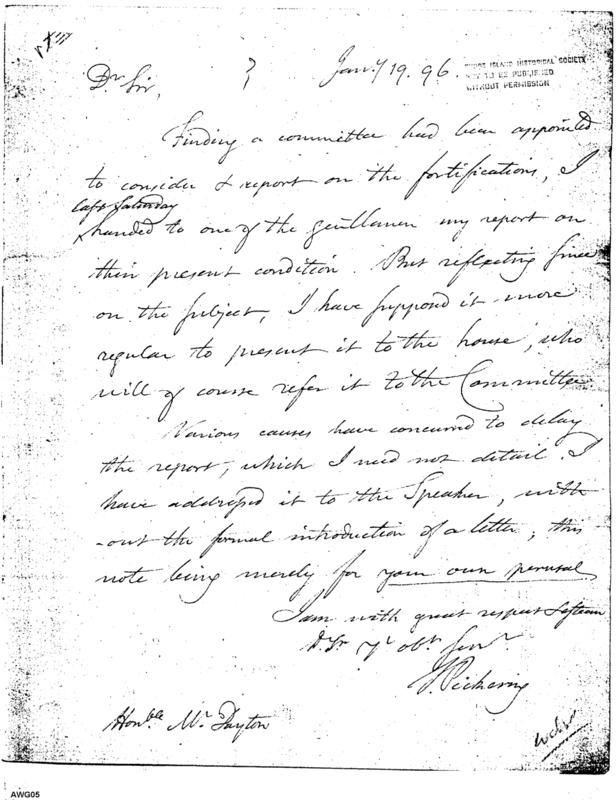 Dr Sir,
?
Jany 19. 96.
RHODE ISLAND HISTORICAL SOCIETY
NOT TO BE PUBLISHED
WITHOUT PERMISSION
Finding a committee had been appointed
to consider & report on the fortifications, I
last Saturday
handed to one of the gentlemen my report on
their present condition. But reflecting since
on the subject, I have supposd it more
regular to present it to the house, who
will of course refer it to the Committee
Various causes have concurred to delay
the report, which I need not detail. I
have addressed it to the Speaker, with
-out the formal introduction of a letter; this
note being merely for your own perusal
I am with great respect & esteem
Dr Sr Yr obt servt
T. Pickering
Honble Mr Dayton
AWG05